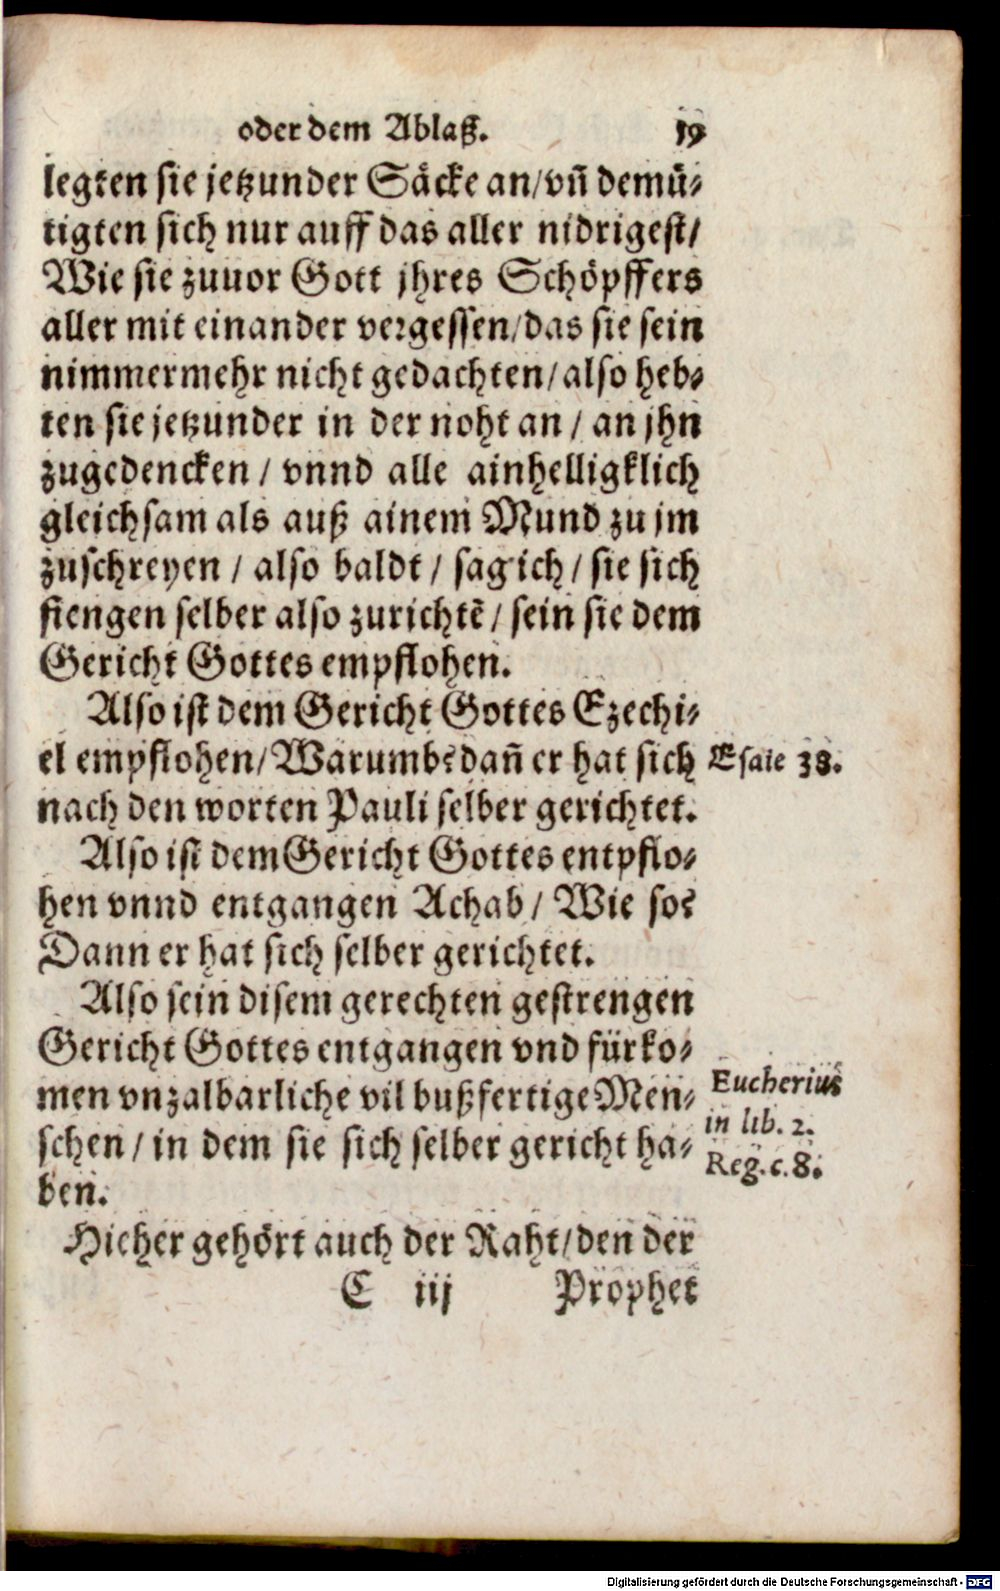 oder dem Ablaß. 19
legten sie jetzunder Säcke an/vñ demü-
tigten sich nur auff das aller nidrigest/
Wie sie zuuor Gott jhres Schöpffers
aller mit einander vergessen/das sie sein
nimmermehr nicht gedachten/also heb-
ten sie jetzunder in der noht an / an jhn
zugedencken / vnnd alle ainhelligklich
gleichsam als auß ainem Mund zu jm
zuschreyen / also baldt / sag ich / sie sich
fiengen selber also zurichtẽ / sein sie dem
Gericht Gottes empflohen.
Also ist dem Gericht Gottes Ezechi-
el empflohen/Warumb? dañ er hat sich
Esaie 38.
nach den worten Pauli selber gerichtet.
Also ist dem Gericht Gottes entpflo-
hen vnnd entgangen Achab / Wie so?
Dann er hat sich selber gerichtet.
Also sein disem gerechten gestrengen
Gericht Gottes entgangen vnd fürko-
men vnzalbarliche vil bußfertige Men-
schen / in dem sie sich selber gericht ha-
ben.
Eucherius
in lib. 2.
Reg. c. 8.
Hieher gehört auch der Raht/den der
C iij Prophet
Digitalisierung gefördert durch die Deutsche Forschungsgemeinschaft - DFG